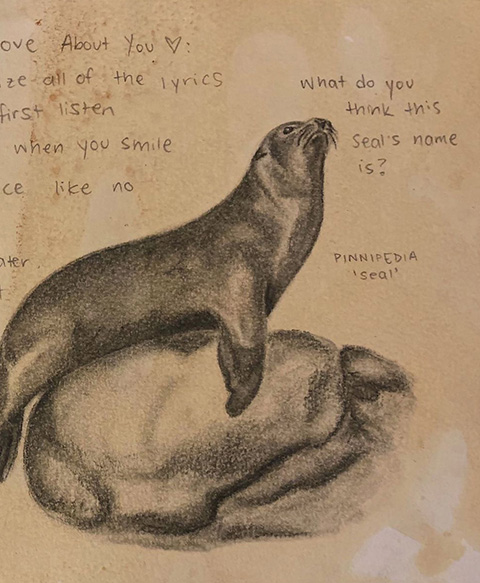 ove About You ♡:
ze all of the lyrics
first listen
when you smile
ce like no
ater
t
What do you
think this
Seal's name
is?
PINNIPEDIA
'seal'